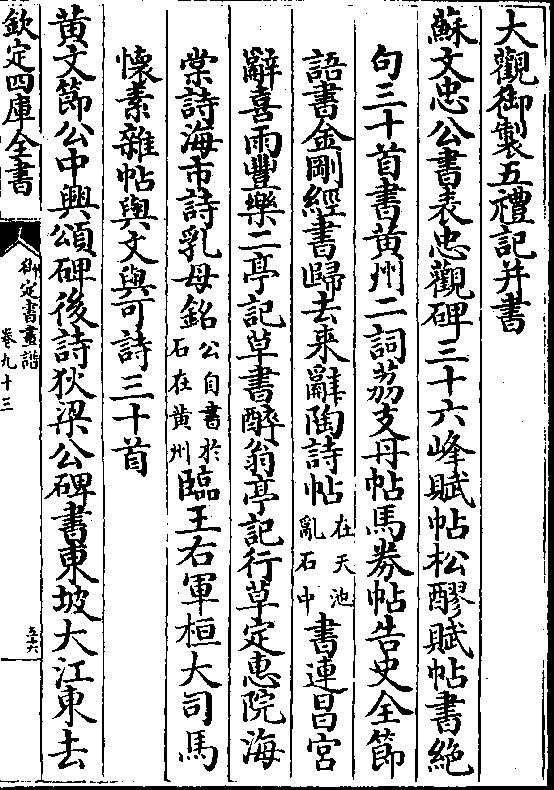 大觀御製五禮記并書
蘇文忠公書表忠觀碑三十六峰賦帖松醪賦帖書絶
句三十首書黄州二詞荔支丹帖馬券帖告史全節
語書金剛經書歸去来辭陶詩帖在天池亂石中書連昌宮
辭喜雨豐樂二亭記草書醉翁亭記行草定惠院海
棠詩海市詩乳母銘公自書於石在黄州臨王右軍桓大司馬
懷素雜帖與文與可詩三十首
黄文節公中興頌碑後詩狄梁公碑書東坡大江東去
欽定四庫全書
御定書畫譜
卷九十三
五十六